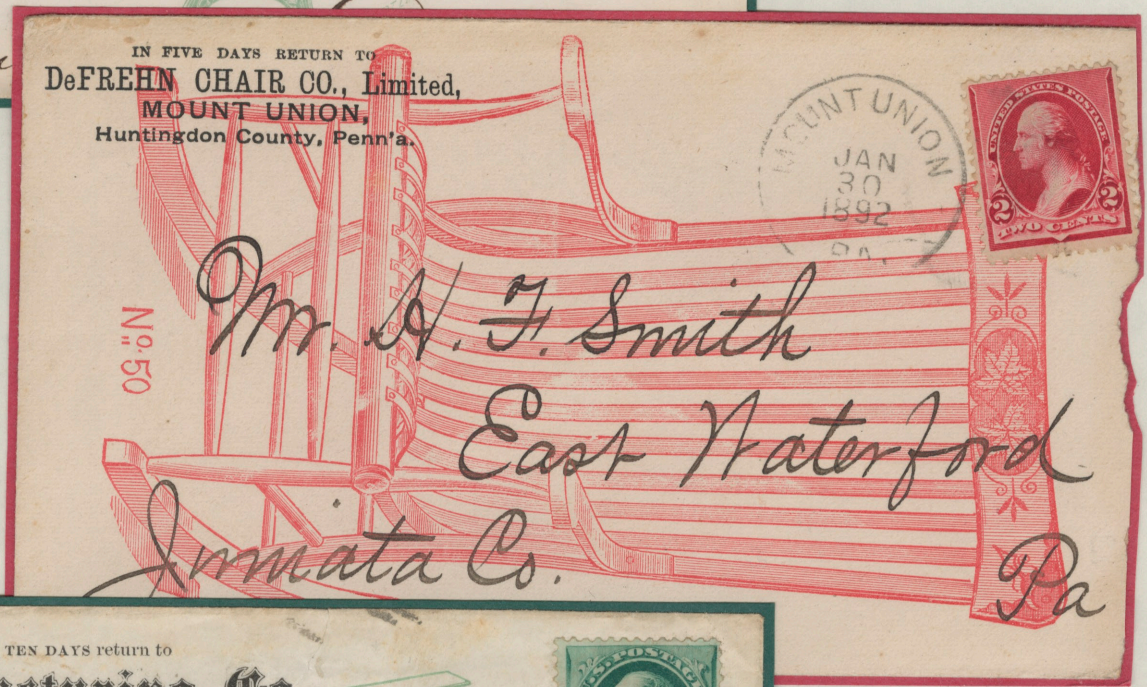 IN FIVE DAYS RETURN TO
DeFREHN CHAIR CO., Limited,
MOUNT UNION,
Huntingdon County, Penn'a.
MOUNT UNION
JAN
30
1892
PA.
UNITED STATES POSTAGE
2 2
TWO CENTS
No. 50
Mr. H. F. Smith
East Waterford
Juniata Co.
Pa
TEN DAYS return to
Co
U.S. POSTAGE